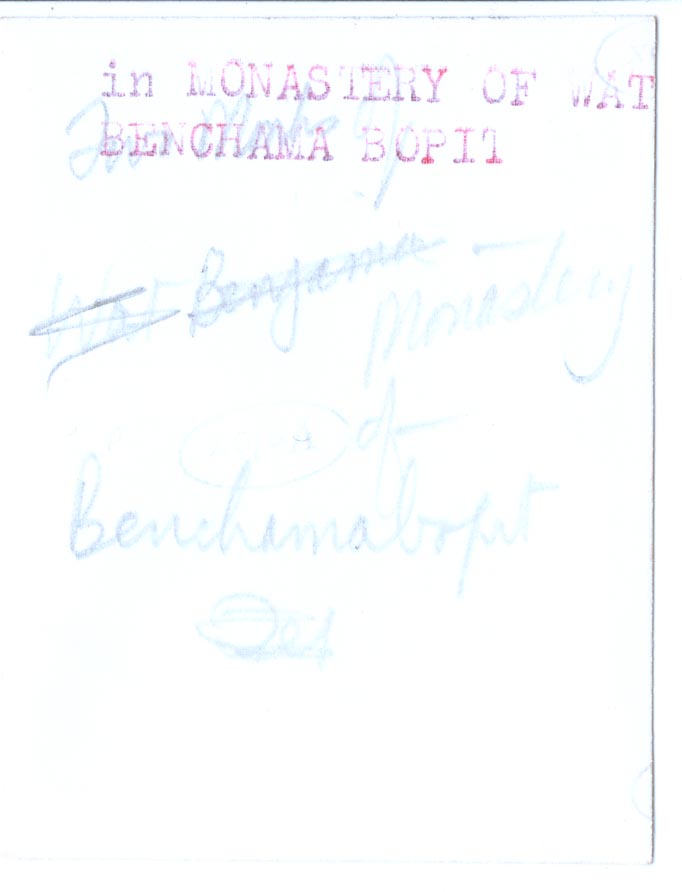 in MONASTERY OF WAT
BENCHAMA BOPIT
Wat Benjama
Monastery
of
Benchamabopit